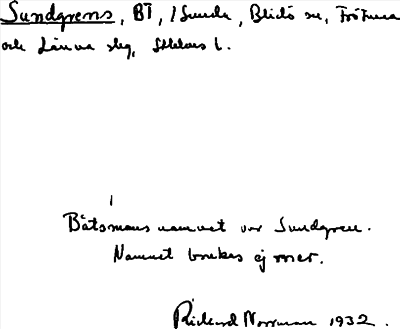 Sundgrens, BT, / Sunda, Blidö sn, Frötuna
och Länna slg, Sthlms l.
Båtsmansnamnet var Sundgren.
Namnet brukas ej mer.
Rickard Norrman 1932.